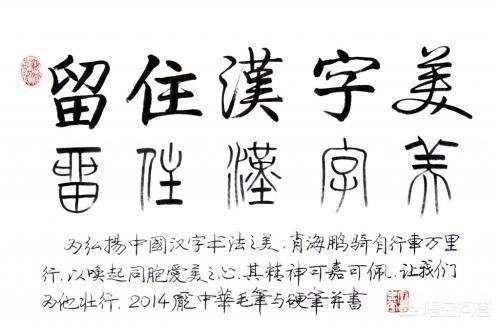 留住漢字美
留住漢字美
为弘揚中國汉字书法之美.肖海鹏骑自行車万里
行.以唤起同胞愛美之心.其精神可嘉可佩.让我们
为他壮行.2014龐中華毛筆与硬筆并書
悟空问答